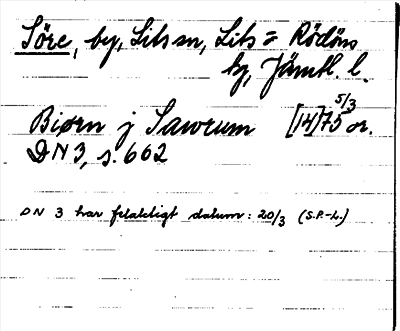 Söre, by, Lits sn, Lits o Rödöns
tg, Jämtl. l.
Biørn j Sawrum [14]75 5/3 or.
DN 3, s. 662
DN 3 har felaktigt datum: 20/3 (S.P.-L.)